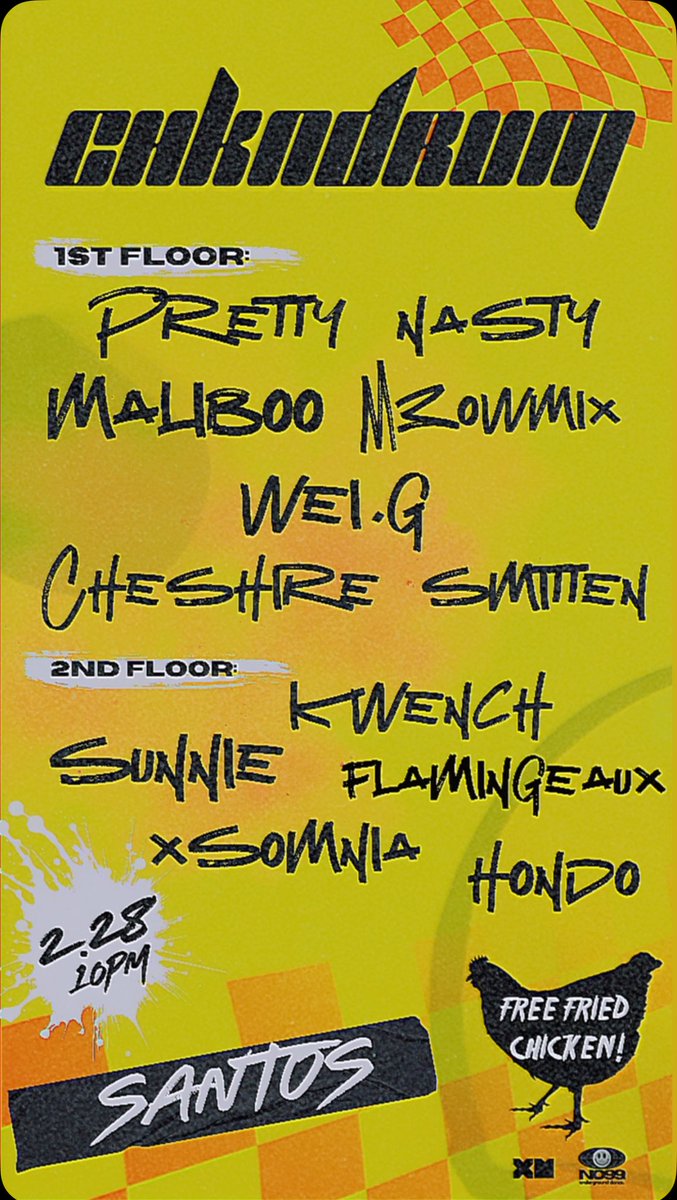 CHKNDRUM
1ST FLOOR:
PRETTY NASTY
MALIBOO MEOWMIX
WEI.G
CHESHIRE SMITTEN
2ND FLOOR:
KWENCH
SUNNIE FLAMINGEAUX
XSOMNIA
HONDO
2.28
10PM
FREE FRIED
CHICKEN!
SANTOS
NO99
underground dance.